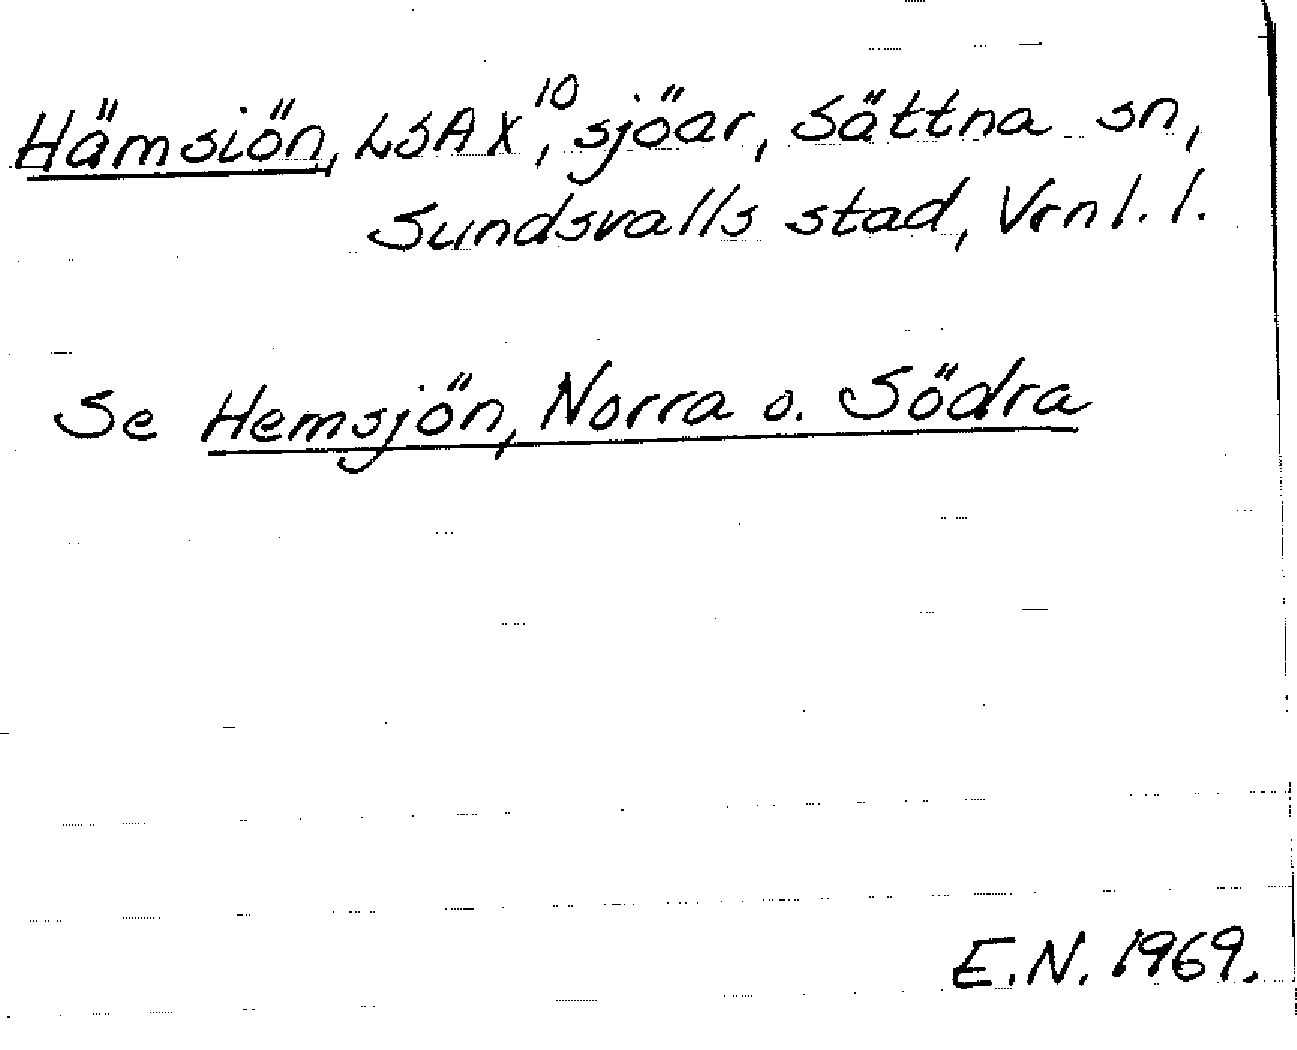 Hämsiön, LSA X¹⁰, sjöar, Sättna sn,
Sundsvalls stad, Vrnl. l.
Se Hemsjön, Norra o. Södra
E.N. 1969.